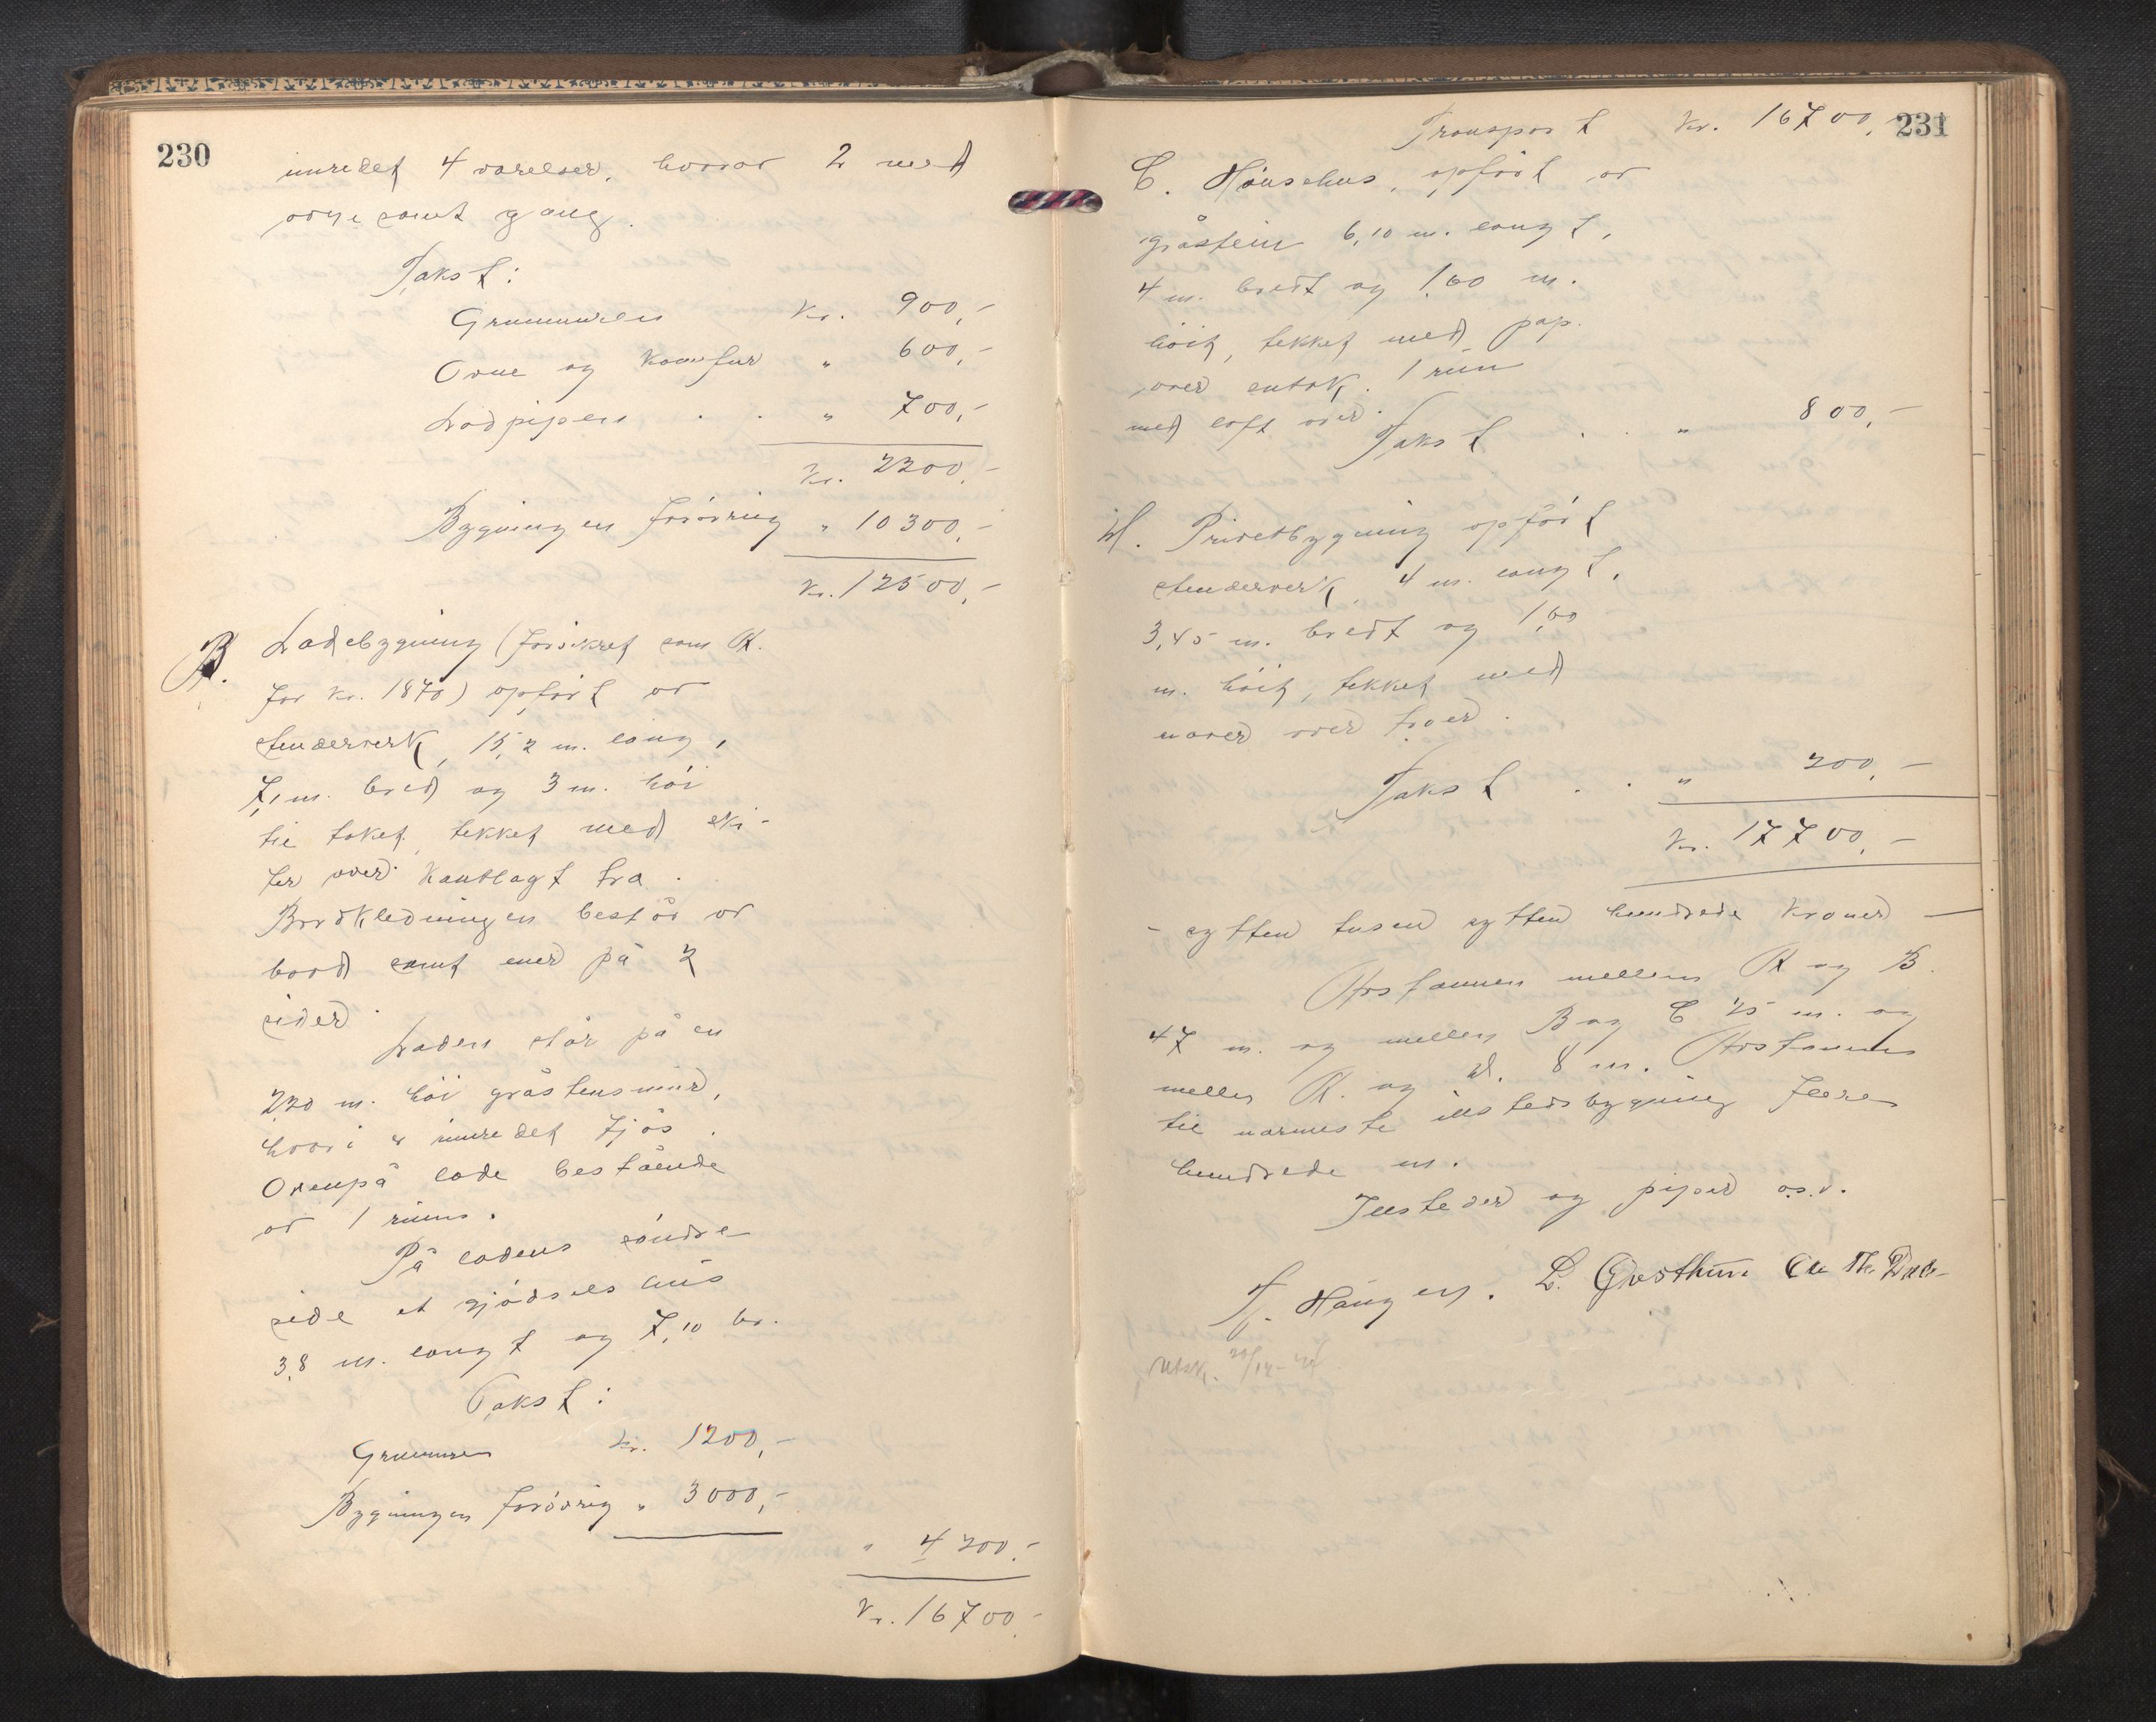 230
innredet 4 værelser, hvorav 2 med
ovne samt gang.
Takst:
Grunnmuren Kr. 900,-
Ovne og komfur " 600,-
Ladpipen . . " 700,-
Kr. 2200,-
Bygningen forövrig " 10300,-
Kr. 12500,-
B. Ladebygning (forsikret som A.
for kr. 1870) opfört av
stenderverk, 15,2 m. lang,
7,1 m. bred og 3 m. höi
til taket, tekket med ski-
fer over kantlagt tro.
Bordkledningen består av
bord samt ener på 2
sider.
Laden står på en
2,20 m. höi gråstensmur,
hvori er innredet fjös.
Ovenpå lade bestående
av 1 rum.
På ladens söndre
side et gjödselshus
3,8 m. langt og 7,10 br.
Takst:
Grunnmuren Kr. 1200,-
Bygningen forövrig " 3000,-
" 4200.-
Kr. 16700.-
231
Transport Kr. 16700,
C. Hönsehus, opfört av
gråstein 6,10 m. langt,
4 m. bredt og 1,60 m.
höit, tekket med pap.
over sutak. 1 rum
med loft over.
Takst . . " 800,-
d. Privetbygning opfört
stenderverk, 4 m. langt,
3,45 m. bredt og 1,60
m. höit, tekket med
naver over troer.
Takst . . " 200,-
Kr. 17700,-
- sytten tusen sytten hundrede kroner -
Avstannen mellem A og B.
47 m. og mellem B og C 25 m. og
mellem A. og d. 8 m. Avstannen
til nærmeste illstedsbygning flere
hundrede m.
Illsteder og piper o.s.v.
J. Haugen. L. Gvesthun
Utsk. 20/12-24